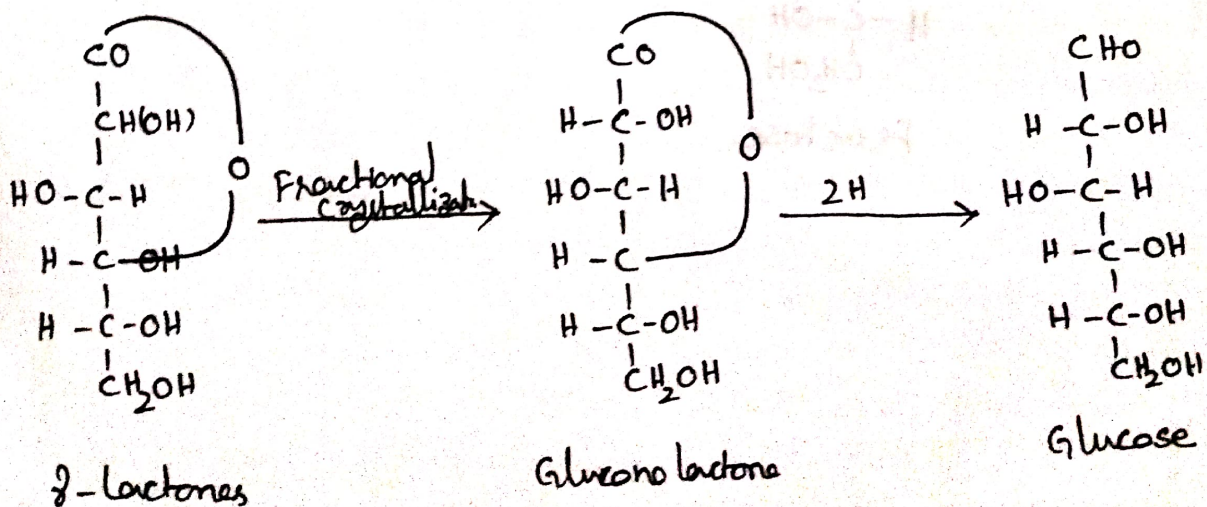 CO
CH(OH)
HO-C-H
H-C-OH
H-C-OH
CH₂OH
O
γ-lactones
Fractional
Crystallizatn
CO
H-C-OH
HO-C-H
H-C
H-C-OH
CH₂OH
O
Glucono lactone
2H
CHO
H-C-OH
HO-C-H
H-C-OH
H-C-OH
CH₂OH
Glucose